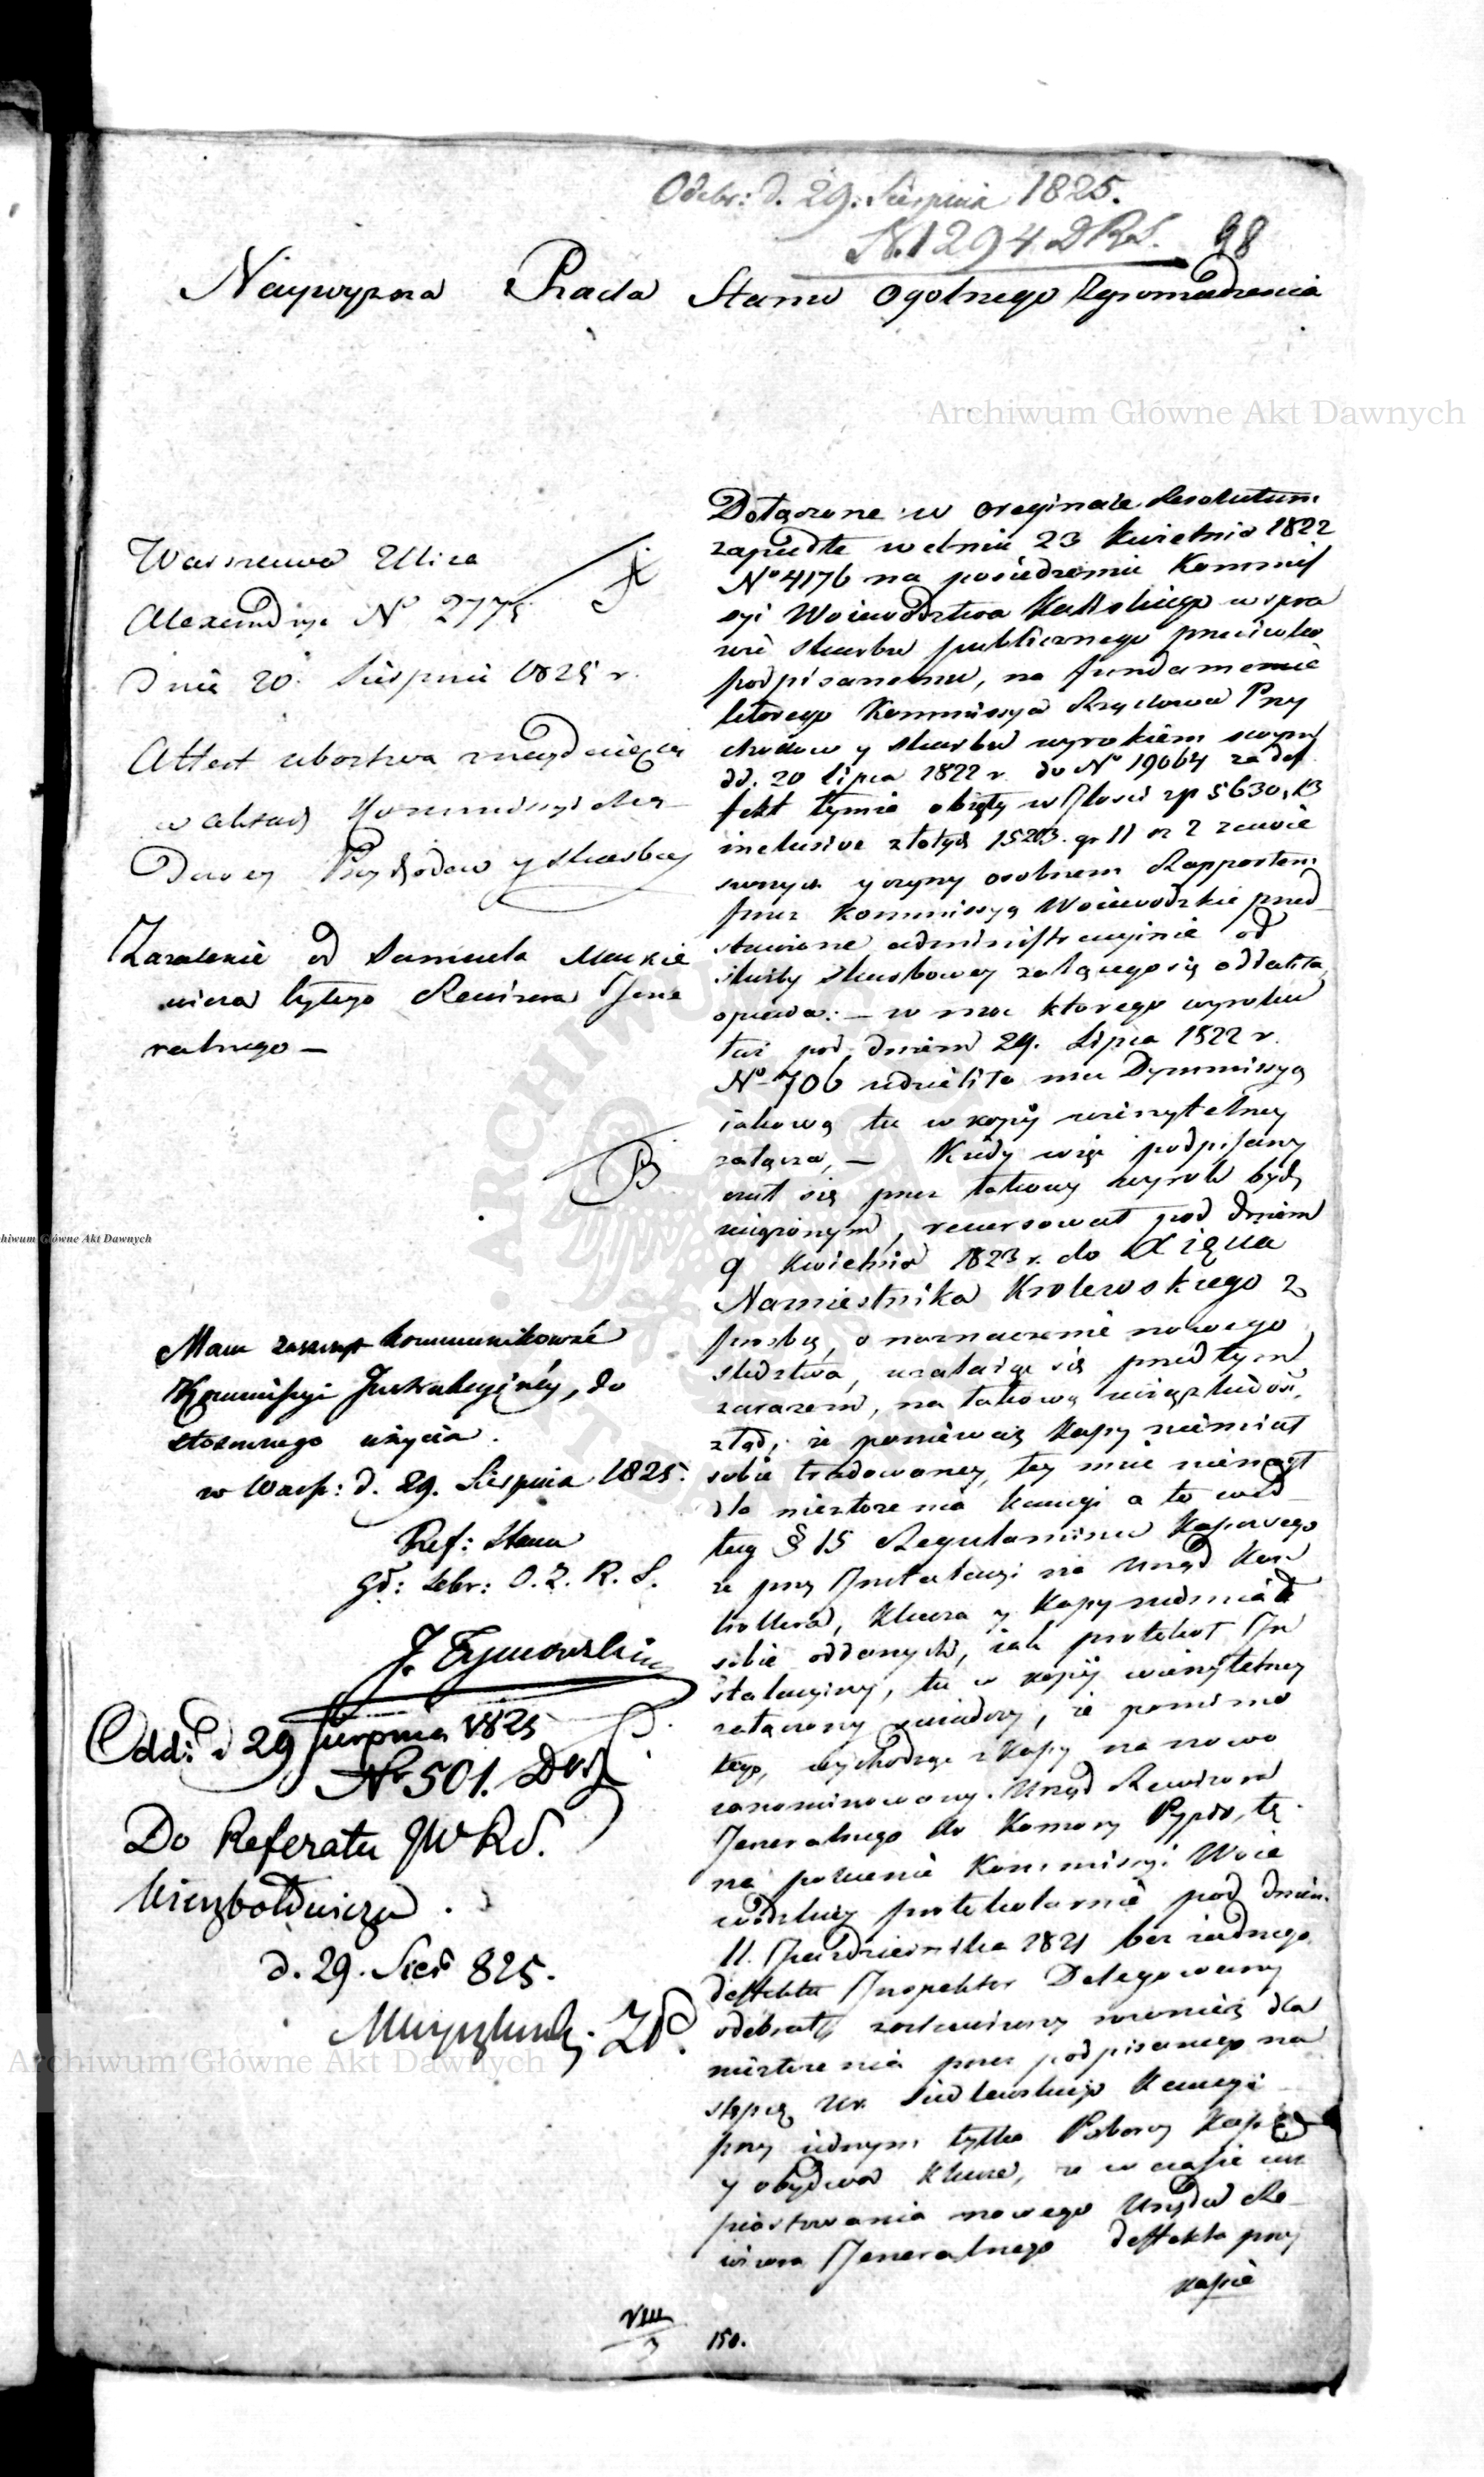 Odebr: d. 29. Sierpnia 1825.
N. 1294 D.R.S.
98
Naywyzsza Rada Stanu Ogolnego Zgromadzenia
Archiwum Główne Akt Dawnych
Warszawa Ulica
Alexandrya No 2775
Dnia 20. Sierpnia 1825 r.
Attest ubostwa znayduie się
w aktach Kommissyi Rzą
Dowey Przychodow y Skarbu
Zazalenie od Samuela Mackie
wicza bylego Rewizora Jene
ralnego –
B
Mam zaszczyt kommunikować
Kommissyi Instrukcyiney, do
stosownego użycia.
w Warsz: d. 29. Sierpnia 1825.
Ref: Stanu
Sekr: O. Z. R. S.
J. Tymowski
Odd: d 29 Sierpnia 1825
No 501.
Do Referatu JW RS.
Wierzbołowicza
d. 29. Sier 825.
Dołączone w oryginale Resolutum
zapadłe w dniu 23 Kwietnia 1822
No 4176 na posiedzeniu Kommis
syi Woiewodztwa Kaliskiego w spra
wie Skarbu publicznego przeciwko
podpisanemu, na fundamencie
ktorego Kommissya Rządowa Przy
chodow y Skarbu wyrokiem swym
dd. 20 lipca 1822 r. do No 19064 za def
fekt tymże obięty w Ilosci zp 5630, 13
inclusive złotych gr 11 zawie
szonych y czyny osobnem Rapportem
przez Kommissyą Woiewodzkie przed
stawione administracyinie od
służby Skarbowey załącego się oddaliła
opiewa: – w moc ktorego wyroku
taż pod dniem 29. Lipca 1822 r.
No 706 udzieliła mu Dymmissyą
iakową tu w kopij wierzytelney
załącza, – Kiedy więc podpisany
czuł się przez takowy wyrok bydź
, recursował pod dniem
9 Kwietnia 1823 r. do Xięcia
Namiestnika Krolewskiego z
prosbą, o naznaczenie nowego
sledztwa, uzalaiąc się przed tym
zarazem, na takową uciążliwość,
ztąd, że ponieważ Kassy niemiał
sobie tradowaney, tey nie
dla niezłożenia kaucyi a to wed
ług § 15 Regulaminu Kassowego
ze przy Instalacyi na Urząd Kon
trollera, Klucza y Kassy niemiał
sobie oddanych, iak protokoł In
stalacyiny, tu w kopij wierzytelney
załączony swiadczy, że pomimo
tego, wychodząc z Kassy na nowo
zanominowany Urząd Rewizora
Jeneralnego do Komory, tę
na polecenie Kommissyi Woie
wodzkiey protokolarnie pod dniem
11. Pazdziernika 1821 bez żadnego
deffektu Inspektor Delegowany
odebrał, zostawiony rownież dla
niezłożenia przez podpisanego na
stępcę Ur. Siedlewskiego Kaucyi
przy iednym tylko Poborcy Kassy
y obydwa Klucze, ze w czasie
piastowania nowego Urzędu Re
wizora Jeneralnego deffekta przy
kassie
VIII
3
150.
Archiwum Główne Akt Dawnych